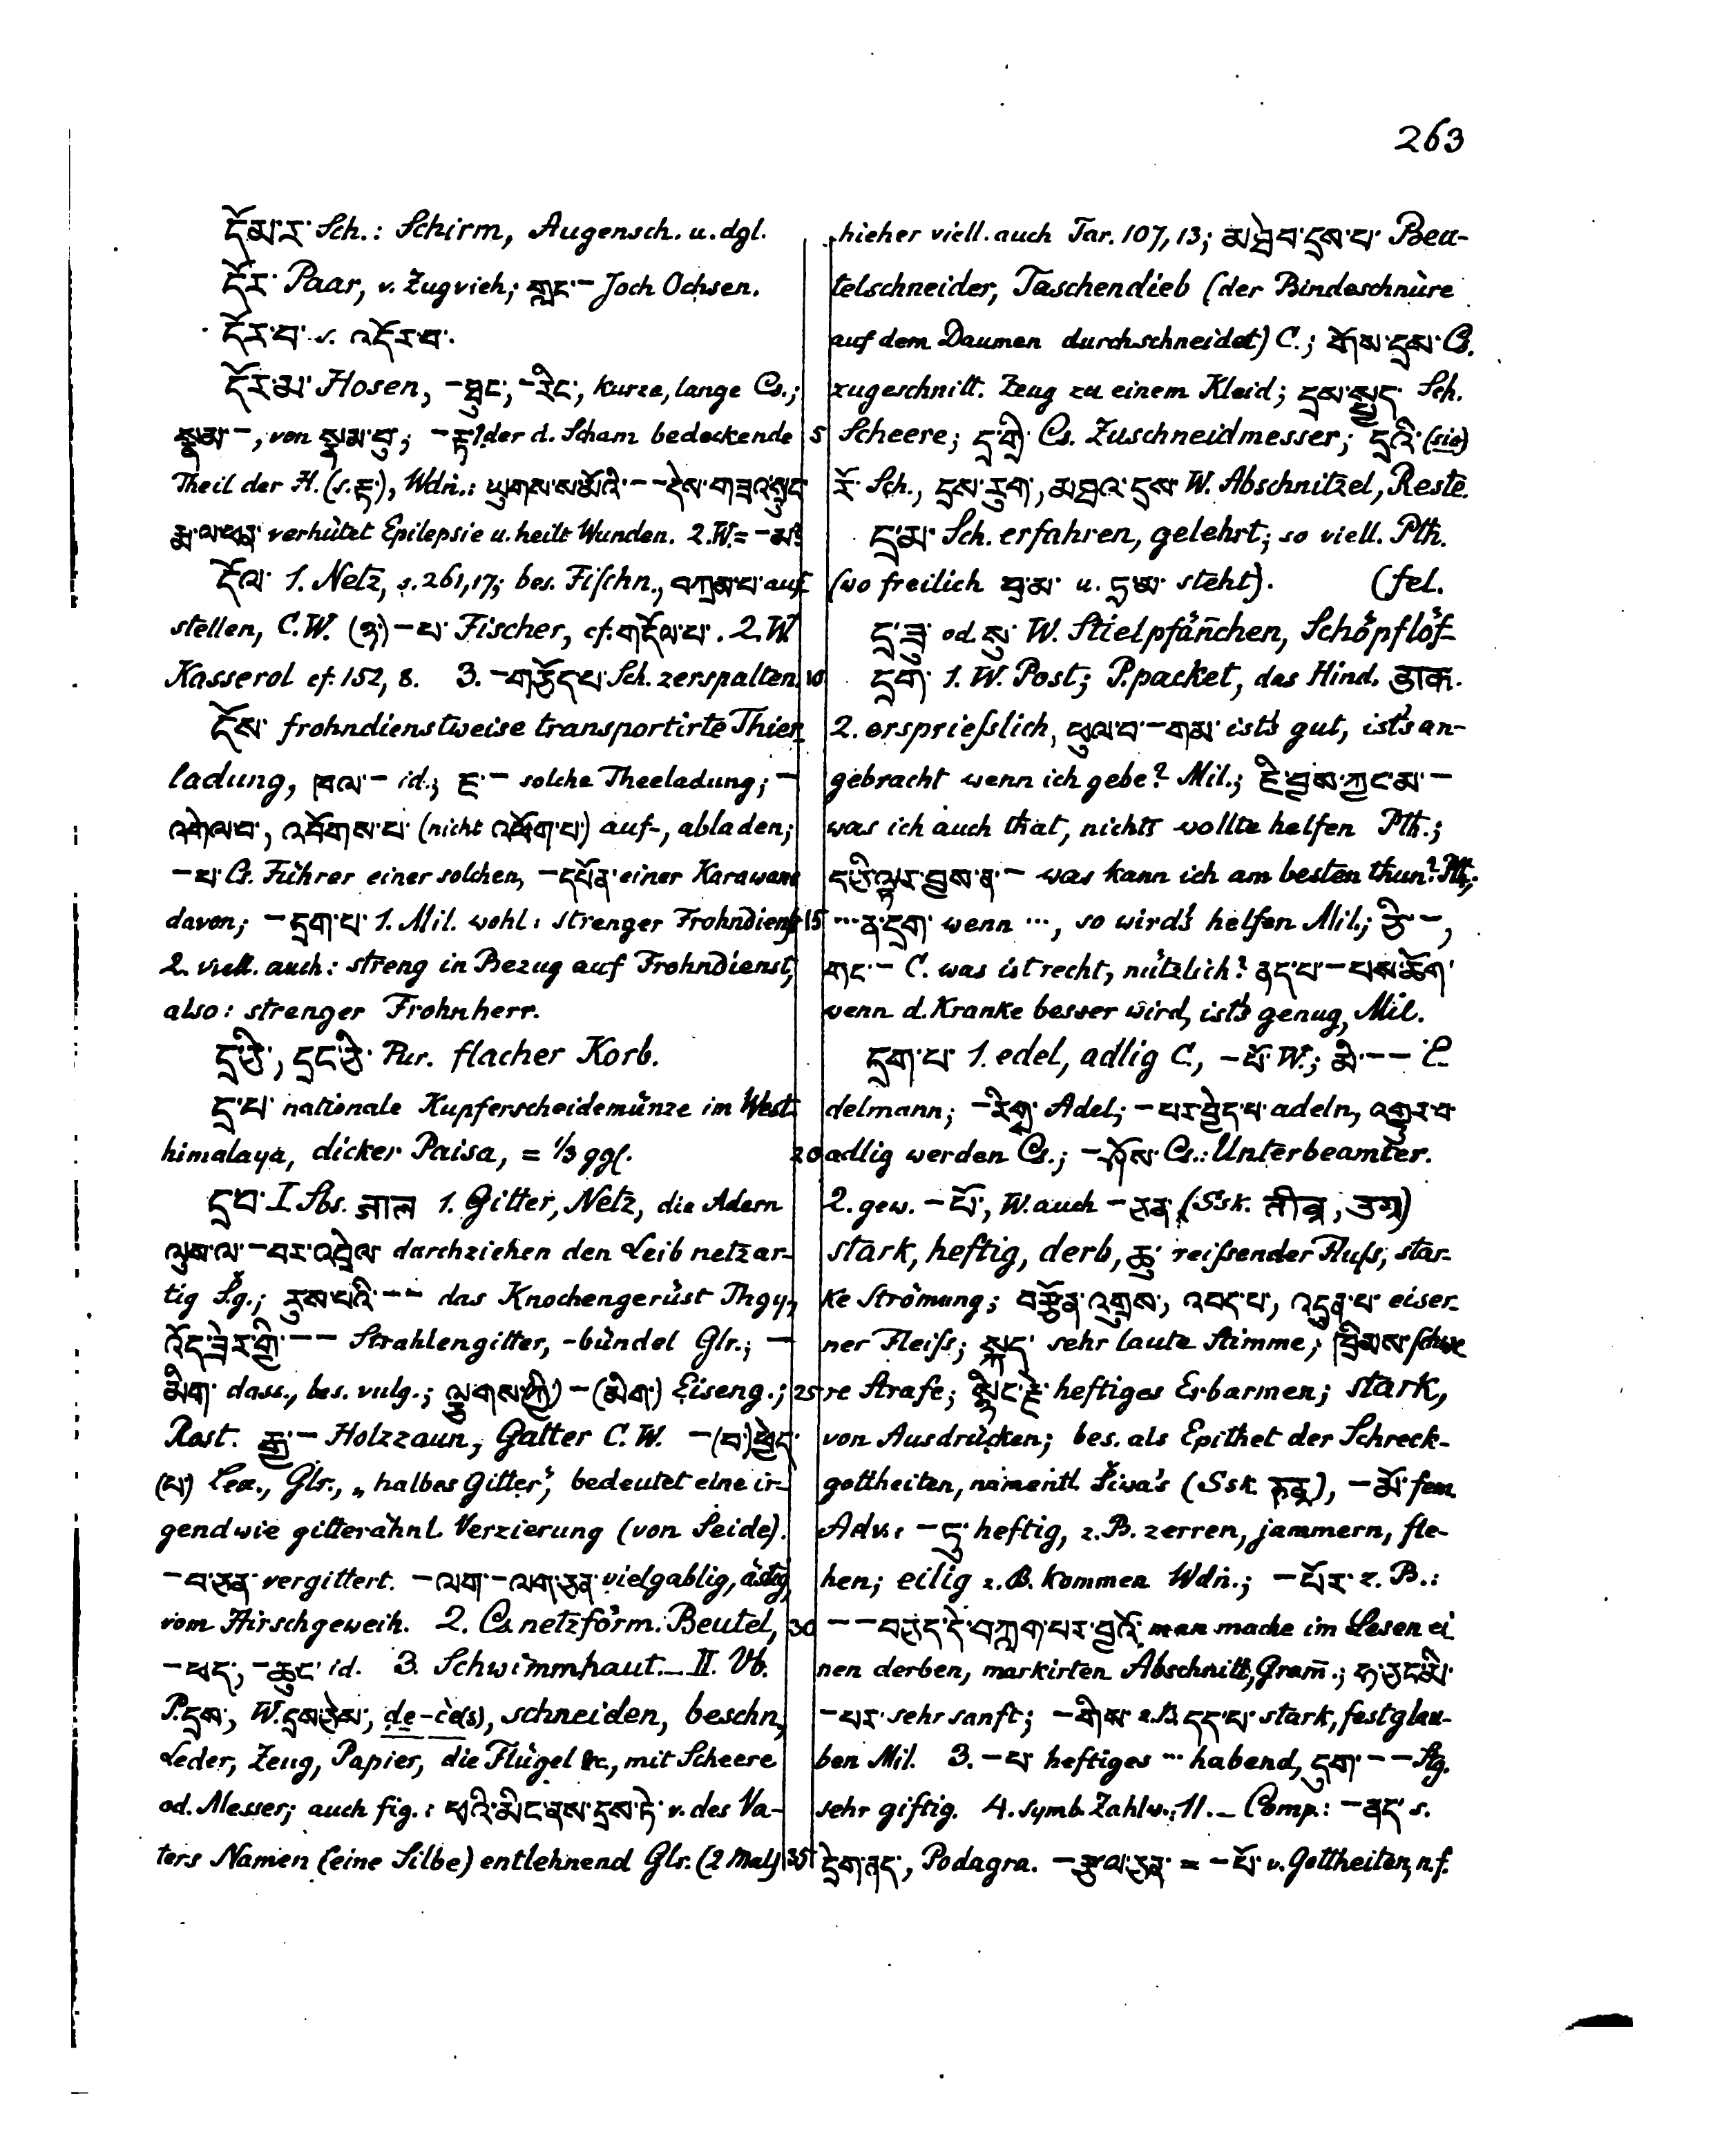 263
དོམ་ར་ Sch.: Schirm, Augensch. u. dgl.
དོར་ Paar, v. Zugvieh; གླང་– Joch Ochsen.
དོར་བ་ s. འདོར་བ་.
དོར་མ་ Hosen, –ཐུང་, –རིང་, kurze, lange Cs.;
སྣམ་–, von སྣམ་བུ; –རྟ? der d. Scham bedeckende
Theil der H. (s. རྟ་), Wdn.: ཡུགས་ས་མོའི་ – –དེས་གཟའ་སྲུང་
རྨ་ལ་ཕན་ verhütet Epilepsie u. heilt Wunden. 2. W. = –མ?
དོལ་ 1. Netz, s. 261,17; bes. Fischn., བཀྲམ་པ་ auf
stellen, C. W. (ཉ་) –པ་ Fischer, cf. གདོལ་པ་. 2. W.
Kasserol cf. 152, 8. 3. –གཅོད་པ་ Sch. zerspalten.
དོས་ frohndienstweise transportirte Thier
ladung, ཁལ་– id.; ཇ་– solche Theeladung; –
འགེལ་བ་, འབོགས་པ་ (nicht འཕོག་པ་) auf-, abladen;
–པ་ Cs. Führer einer solchen, –དཔོན་ einer Karawane
davon; –དྲག་པ་ 1. Mil. wohl: strenger Frohndienst
2. viell. auch: streng in Bezug auf Frohndienst,
also: strenger Frohnherr.
དྲ་ཅི་, དྲང་ཅི་ Pur. flacher Korb.
དྲ་པ་ nationale Kupferscheidemünze im West
himalaya, dicker Paisa, = 1/3 ggl.
དྲབ་ I. Sbs. जाल 1. Gitter, Netz, die Adern
ལུས་ལ་–བར་འབྲེལ་ durchziehen den Leib netzar-
tig S.g.; རུས་པའི་ – – das Knochengerüst Thgy,
འོད་ཟེར་གྱི་ – – Strahlengitter, -bündel Glr.; –
མིག་ dass., bes. vulg.; ལྕགས་(ཀྱི་) –(མིག་) Eiseng.;
Rost. རྒྱ་– Holzzaun, Gatter C. W. –(བ་)ཕྱེད་
(པ་) Lex., Glr., „halbes Gitter”, bedeutet eine ir-
gendwie gitterähnl. Verzierung (von Seide).
–བ་ཅན་ vergittert. –ལག་–ལག་ཅན་ vielgablig, ästig,
vom Hirschgeweih. 2. Cs. netzförm. Beutel,
–ཕད་, –ཆུང་ id. 3. Schwimmhaut. – II. Vb.
P. དྲས་, W. དྲས་ཅེས་, de-cè(s), schneiden, beschn,
Leder, Zeug, Papier, die Flügel &c., mit Scheere
od. Messer; auch fig.: ཕའི་མིང་ནས་དྲས་ཏེ་ v. des Va-
ters Namen (eine Silbe) entlehnend Glr. (2 mal)
5
10
15
20
25
30
35
hieher viell. auch Tar. 107, 13; མཐེབ་དྲས་པ་ Beu-
telschneider, Taschendieb (der Bindeschnüre
auf dem Daumen durchschneidet) C.; གོས་དྲས་ Cs.
zugeschnitt. Zeug zu einem Kleid; དྲས་སྤྱད་ Sch.
Scheere; དྲ་གྲི་ Cs. Zuschneidmesser; དྲའི་ (sic)
རོ་ Sch., དྲས་རུག་, མཐའ་དྲས་ W. Abschnitzel, Reste.
དྲ་མ་ Sch. erfahren, gelehrt; so viell. Pth.
(wo freilich བྲ་མ་ u. དྲ་མ་ steht). (fel.
དྲ་ཟུ་ od. སུ་ W. Stielpfännchen, Schöpflöf-
དྲག་ 1. W. Post; P. packet, das Hind. डाक.
2. erspriefslich, ཕུལ་བ་–གམ་ ist's gut, ist's an-
gebracht wenn ich gebe? Mil.; ཇི་བྱས་ཀྱང་མ་–
was ich auch that, nichts wollte helfen Pth.;
ད་ཅི་ལྟར་བྱས་ན་– was kann ich am besten thun? Pth.;
... ན་དྲག་ wenn ..., so wird's helfen Mil.; ཅི་–,
གང་– C. was ist recht, nützlich? ནད་པ་–པས་ཆོག་
wenn d. Kranke besser wird, ist's genug, Mil.
དྲག་པ་ 1. edel, adlig C., –པོ་ W.; མི་ – – E-
delmann; –རིགས་ Adel; –པར་བྱེད་པ་ adeln, འགྱུར་བ་
adlig werden Cs.; –ཤོས་ Cs.: Unterbeamter.
2. gew. –པོ་, W. auch –ཅན་ (Ssk. तीव्र, उग्र)
stark, heftig, derb, ཆུ་ reifsender Flufs, star-
ke Strömung; བརྩོན་འགྲུས་, འབད་པ་, འདུན་པ་ eiser-
ner Fleifs; སྐད་ sehr laute Stimme; ཁྲིམས་ schwe
re Strafe; སྙིང་རྗེ་ heftiges Erbarmen; stark,
von Ausdrücken; bes. als Epithet der Schreck-
gottheiten, namentl. Siwa's (Ssk. रुद्र), –མོ་ fem
Adv.: –ཏུ་ heftig, z. B. zerren, jammern, fle-
hen; eilig z. B. kommen Wdn.; –པོར་ z. B.:
– –བཅད་དེ་བཀླག་པར་བྱའོ་ man mache im Lesen ei
nen derben, markirten Abschnitt, Gram.; ཧ་ཅང་མི་
–པར་ sehr sanft; –གིས་ z. B. དད་པ་ stark, fest glau-
ben Mil. 3. –པ་ heftiges ... habend, དུག་ – – Stg.
sehr giftig. 4. symb. Zahlw.: 11. – Comp.: –ནད་ s.
དྲེག་ནད་, Podagra. –རྩལ་ཅན་ = –པོ་ v. Gottheiten, n. f.